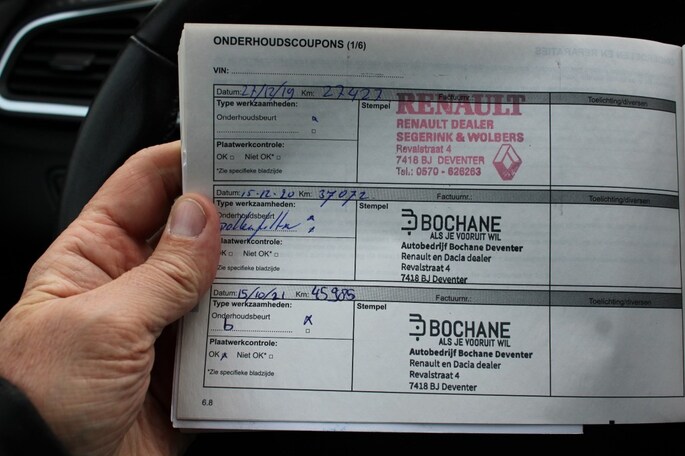 ONDERHOUDSCOUPONS (1/6)
VIN:
Datum: 27/12/19 Km: 27427 Factuurnr.: Toelichting/diversen
Type werkzaamheden:
Stempel
Onderhoudsbeurt
Plaatwerkcontrole:
OK Niet OK*
*Zie specifieke bladzijde
RENAULT
RENAULT DEALER
SEGERINK & WOLBERS
Revalstraat 4
7418 BJ DEVENTER
Tel.: 0570 - 626263
Datum: 15-12-20 Km: 37072 Factuurnr.: Toelichting/diversen
Type werkzaamheden:
Stempel
Onderhoudsbeurt
Pollenfilter
Plaatwerkcontrole:
OK Niet OK*
*Zie specifieke bladzijde
BOCHANE
ALS JE VOORUIT WIL
Autobedrijf Bochane Deventer
Renault en Dacia dealer
Revalstraat 4
7418 BJ Deventer
Datum: 15/10/21 Km: 45985 Factuurnr.: Toelichting/diversen
Type werkzaamheden:
Stempel
Onderhoudsbeurt x
b
Plaatwerkcontrole:
OK x Niet OK*
*Zie specifieke bladzijde
BOCHANE
ALS JE VOORUIT WIL
Autobedrijf Bochane Deventer
Renault en Dacia dealer
Revalstraat 4
7418 BJ Deventer
6.8